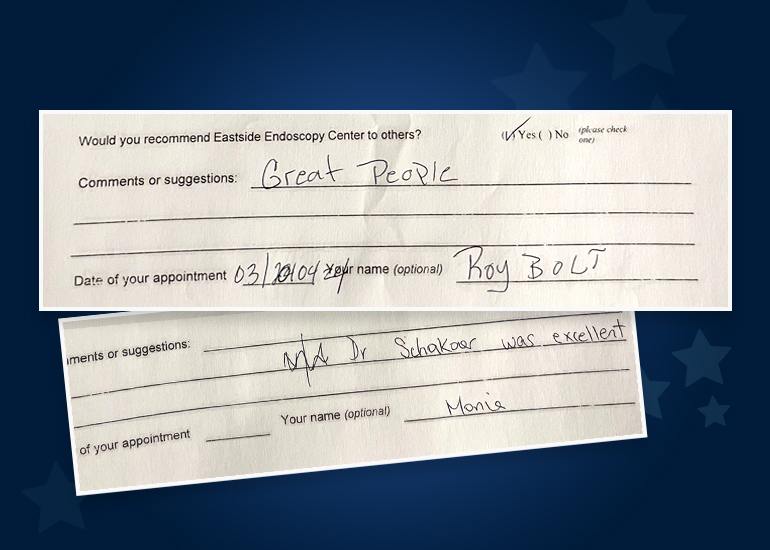 Would you recommend Eastside Endoscopy Center to others? (✓) Yes ( ) No (please check one)
Comments or suggestions: Great People
Date of your appointment 03/ Your name (optional) Roy BOLT
ments or suggestions:
Dr Schakoor was excellent
of your appointment Your name (optional)